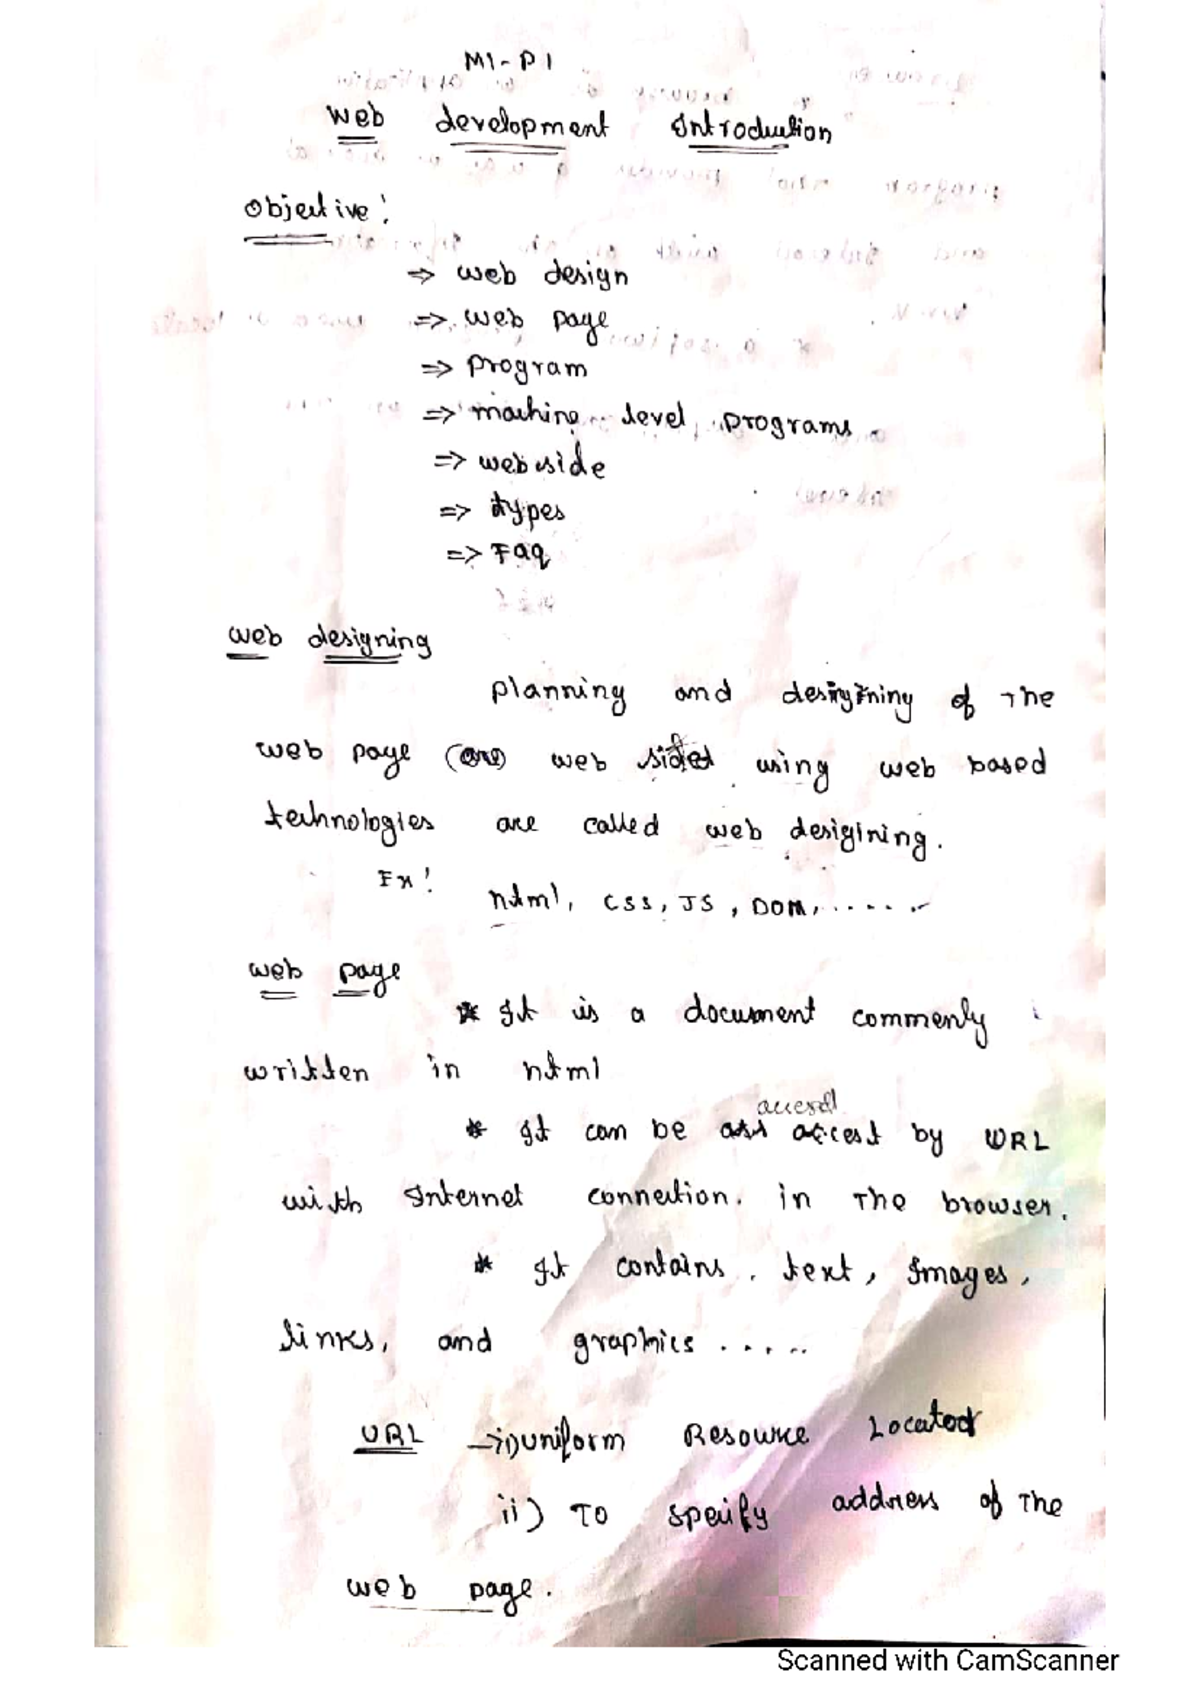 M1-P1
Web development Introduction
Objective:
⇒ web design
⇒ web page
⇒ program
⇒ machine level programs.
⇒ webside
⇒ types
⇒ Faq
web designing
planning and designing of the
web page (or) web sides using web based
technologies are called web desigining.
Ex:
html, css, JS, DOM, ......
web page
* It is a document commenly
written in html
* It can be accest by URL
with Internet connection. in the browser.
* It contains. text, Images,
links, and graphics .....
URL → i) uniform Resource Locator
ii) To specify address of the
web page.
Scanned with CamScanner